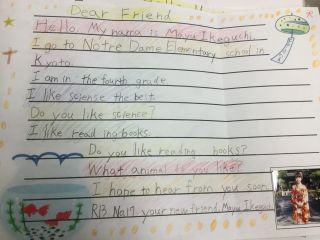 Dear Friend
Hello. My name is Mayu Ikeguchi.
I go to Notre Dame Elementary school in
Kyoto.
I am in the fourth grade.
I like sciense the best.
Do you like science?
I like reading books.
Do you like reading books?
What animal do you like?
I hope to hear from you soon.
R13 No17 your new friend, Mayu Ikeguchi